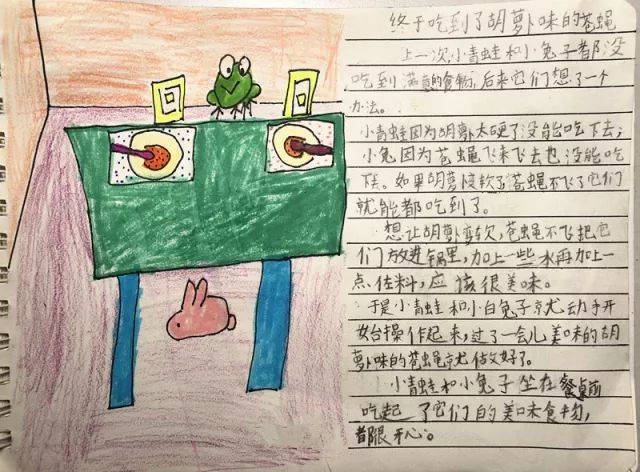 终于吃到了胡萝卜味的苍蝇
上一次,小青蛙和小兔子都没
吃到满意的食物,后来它们想了一个
办法。
小青蛙因为胡萝卜太硬了没能吃下去;
小兔因为苍蝇飞来飞去也没能吃
下去。如果胡萝卜变软了苍蝇不飞了它们
就能都吃到了。
想让胡萝卜变软,苍蝇不飞把它
们放进锅里,加上一些水再加上一
点佐料,应该很美味。
于是小青蛙和小白兔子就动手开
始操作起来,过了一会儿美味的胡
萝卜味的苍蝇就做好了。
小青蛙和小兔子坐在餐桌前
吃起了它们的美味食物,
都很开心。